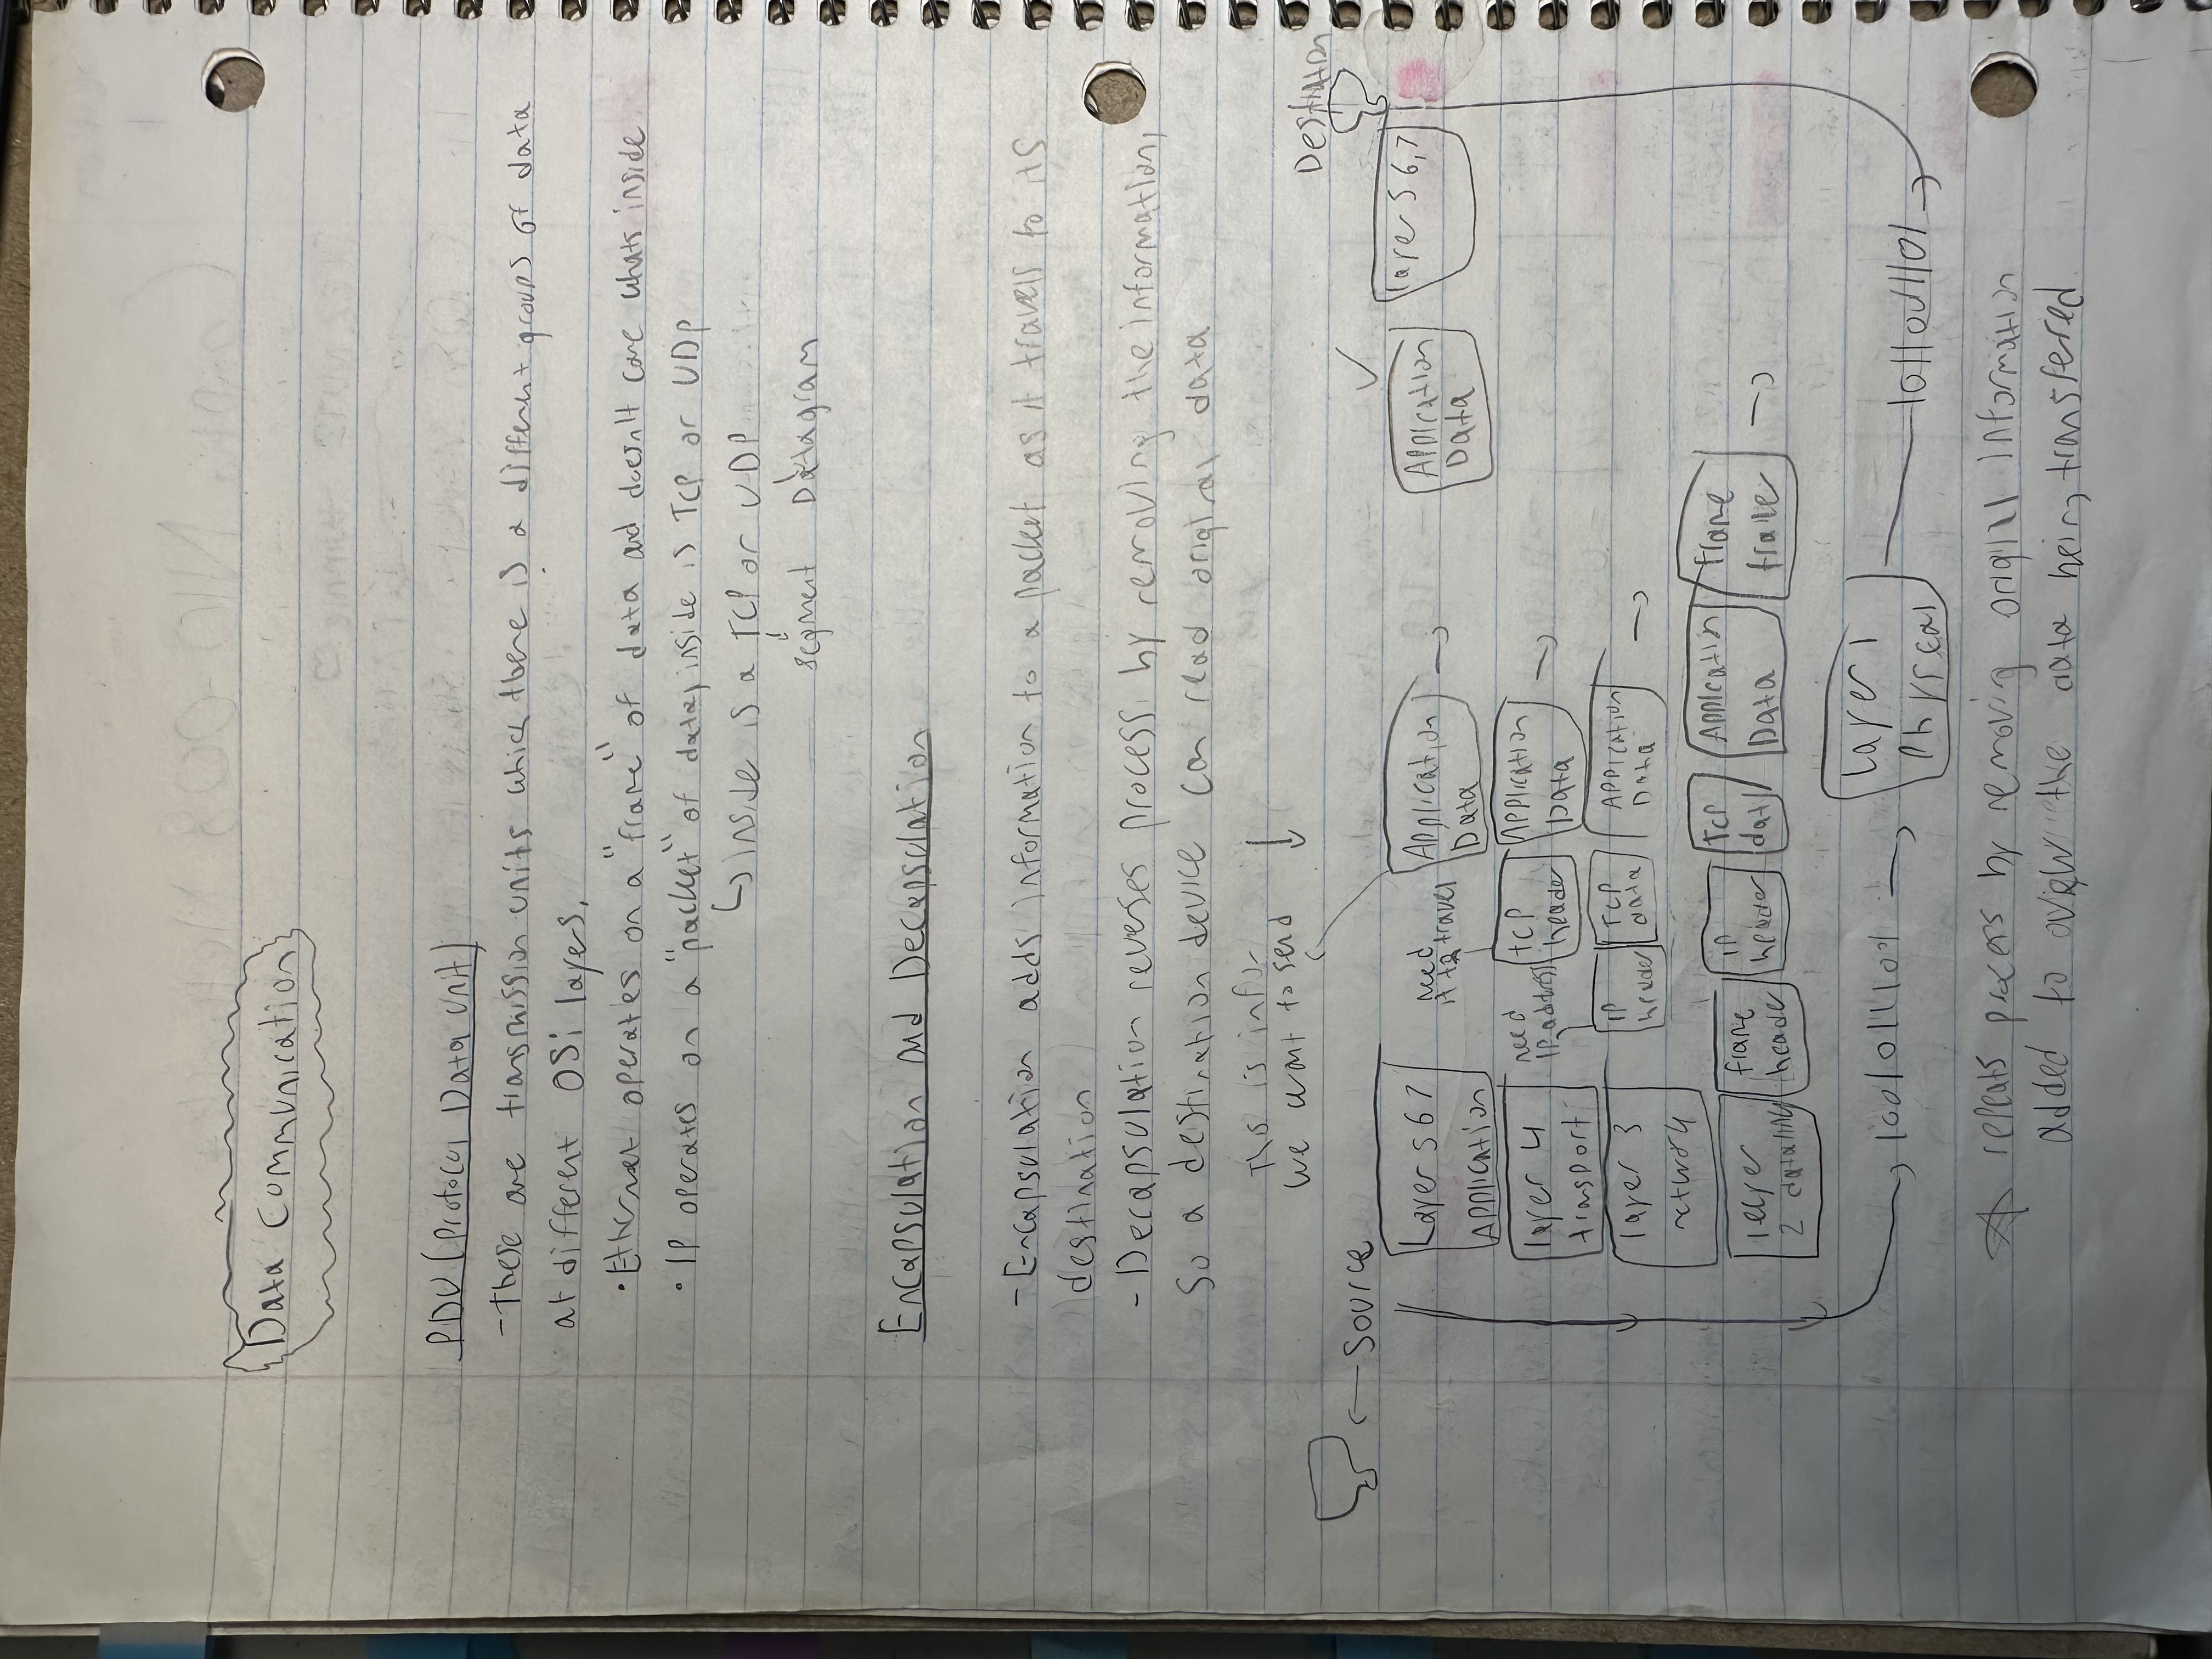 Data Communication
PDU (Protocol Data Unit)
- These are transmission units which there is a different groups of data
at different OSi layers.
• Ethernet operates on a "frame" of data and doesn't care whats inside
• IP operates on a "packet" of data, inside is TCP or UDP
↳ inside is a TCP or UDP
segment Datagram
Encapsulation and Decapsulation
- Encapsulation adds information to a packet as it travels to its
destination
- Decapsulation reverses process by removing the information,
So a destination device can read original data
This is info
we want to send
Destination
← Source
Layer 5 6 7
Application
need
it to travel
Application
Data
Application
Data
layer 5 6,7
layer 4
transport
need
IP address
TCP
header
Application
Data
layer 3
network
IP
header
TCP
data
Application
Data
layer
2 datalink
frame
header
IP
header
TCP
dat
Application
Data
frame
trailer
Layer 1
Physical
repeats process by removing information
added to the data being transfered